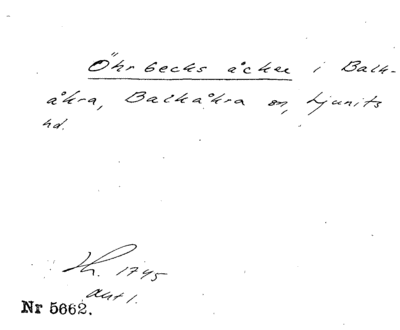 Öhrbecks åcker i Balk-
åkra, Balkåkra sn, Ljunits
hd.
Lh. 1745
akt 1.
Nr 5662.